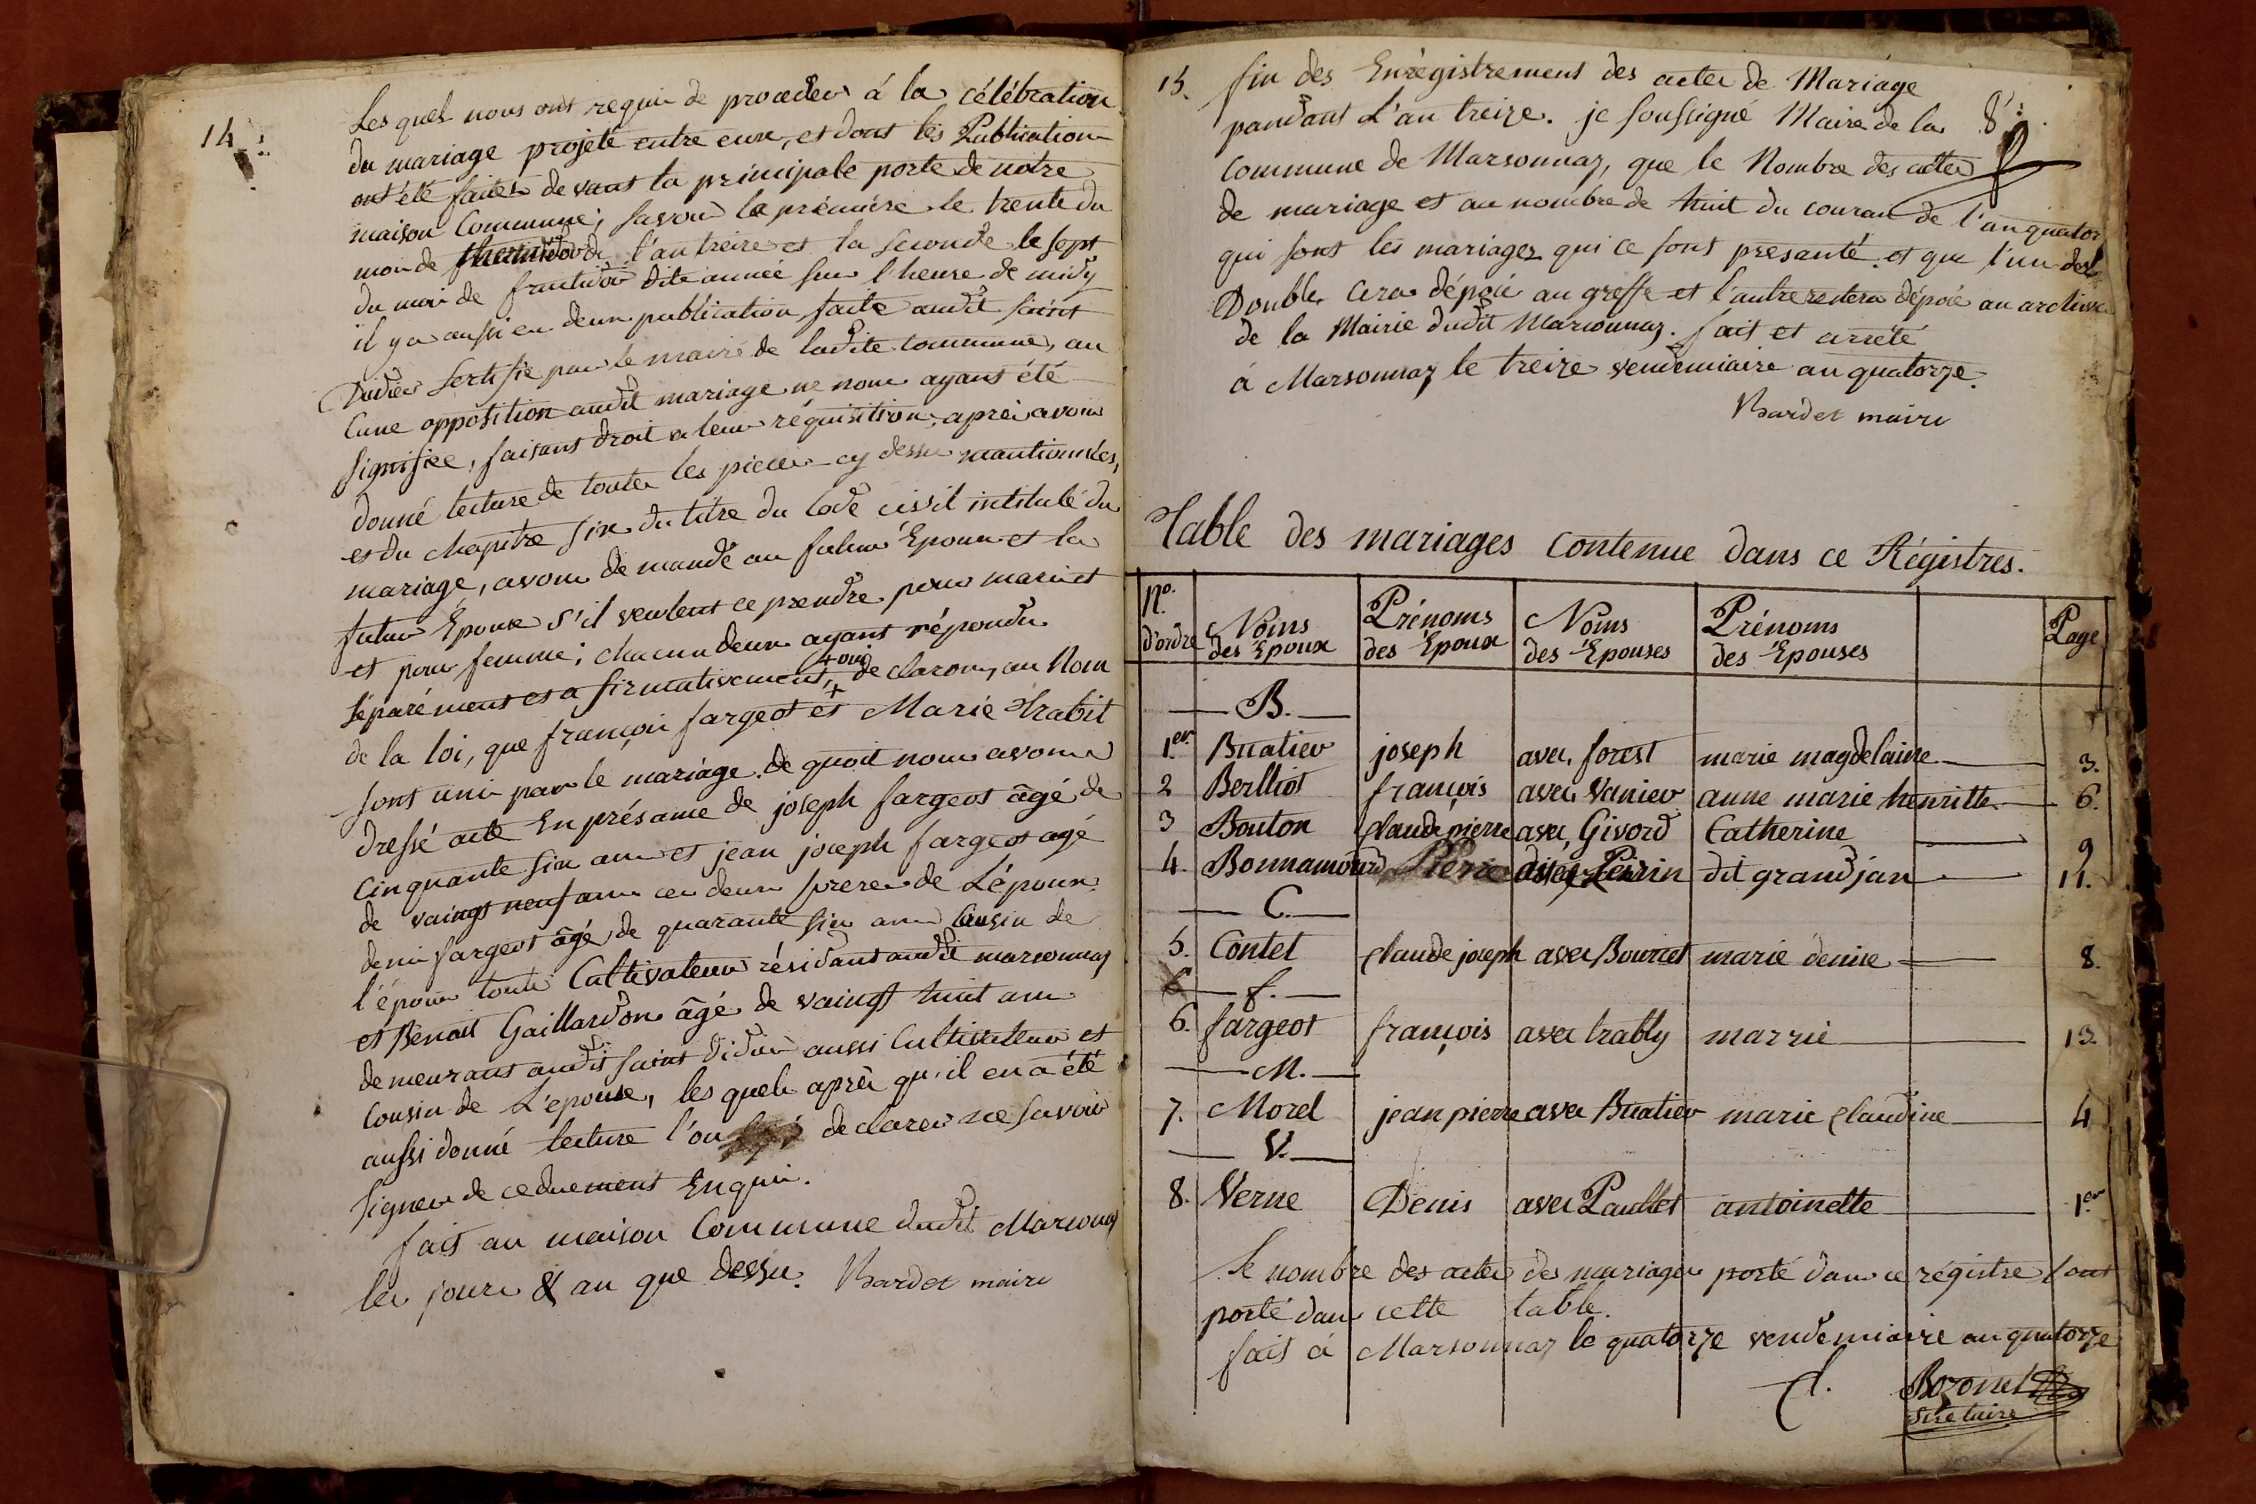 14.
Les quels nous ont requi de proceder á la célébration
du mariage projeté entre eux, et dont les Publication
ont été faites devant la principale porte de notre
maison Commune; Savoir la prémiére le trente du
moi de thermidor de l'an treize et la seconde le sept
du moi de fructidor dite année sur l'heure de midy
il y a aussi eu deux publication faite audit saint
Didier Sertifie par le maire de ladite Commune, au
Cune opposition audit mariage ne nous ayant été
Signifiée, faisant droit a leur réquisition, après avoir
donné lecture de toute les pieces cy dessu mantionnées,
et du chapitre six du titre du Code civil intitulé du
mariage, avons demandé au futur Epoux et la
futur Epouse s'il veulent ce prendre pour mari et
et pour femme; chacun deux ayant répondu
+ oui
séparément et afirmativement, + declarons, au Nom
de la loi, que françois fargeot et Marie Trabit
sont uni par le mariage. de quoit nous avons
dressé acte En présance de joseph fargeot âgé de
cinquante six ans et jean joseph fargeot agé
de vaingt neuf ans ces deux frere de L'époux
deni fargeot âgé de quarante six ans Cousin de
l'époux touts Cultivateur résidant audit marsonnay
et Benoit Gaillardon âgé de vaingt huit ans
demeurant audit saint didier aussi Cultivateur et
Cousin de L'epouse, les quels après qu'il en a été
aussi donné lecture l'on declarer ne savoir
signer de ceduement Enqui.
fait au maison Commune dudit Marsonnay
les jour & an que dessu. Bardet maire
15. fin des Enrégistrement des actes de Mariage
pandant L'an treize. je soussigné Maire de la 8e.
Commune de Marsonnaz, que le Nombre des actes
de mariage et au nombre de huit du courant de l'an quator
qui sont les mariages qui ce sont presanté. et que l'un des
Double cera dépoié au greffe et l'autre restera dépoié au archive
de la Mairie dudit Marsonnaz. fait et arrété
á Marsonnaz le treize vendemiaire an quatorze.
Bardet maire
Table des mariages Contenue dans ce Régistres.
No. d'ordre Noms des Epoux Prénoms des Epoux Noms des Epouses Prénoms des Epouses Page
B.
1er. Buatier joseph avec forest marie magdelaine 3.
2 Berlliot françois avec Vanier anne marie henritte 6.
3 Bouton Claude pierre avec Givord Catherine 9
4. Bonnamour Pierre avec Peirin dit grand jan 11.
C.
5. Contet Claude joseph avec Bourcet marie denise 8.
f.
6. fargeot françois avec trably marrie 13.
M.
7. Morel jean pierre avec Buatier marie Claudine 4
V.
8. Verne Denis avec Paullet antoinette 1er
Le nombre des actes des mariages porté dans ce régistre sont
porté dans cette table.
fait á Marsonnaz le quatorze vendemiaire an quatorze
Bozonet
Secretaire